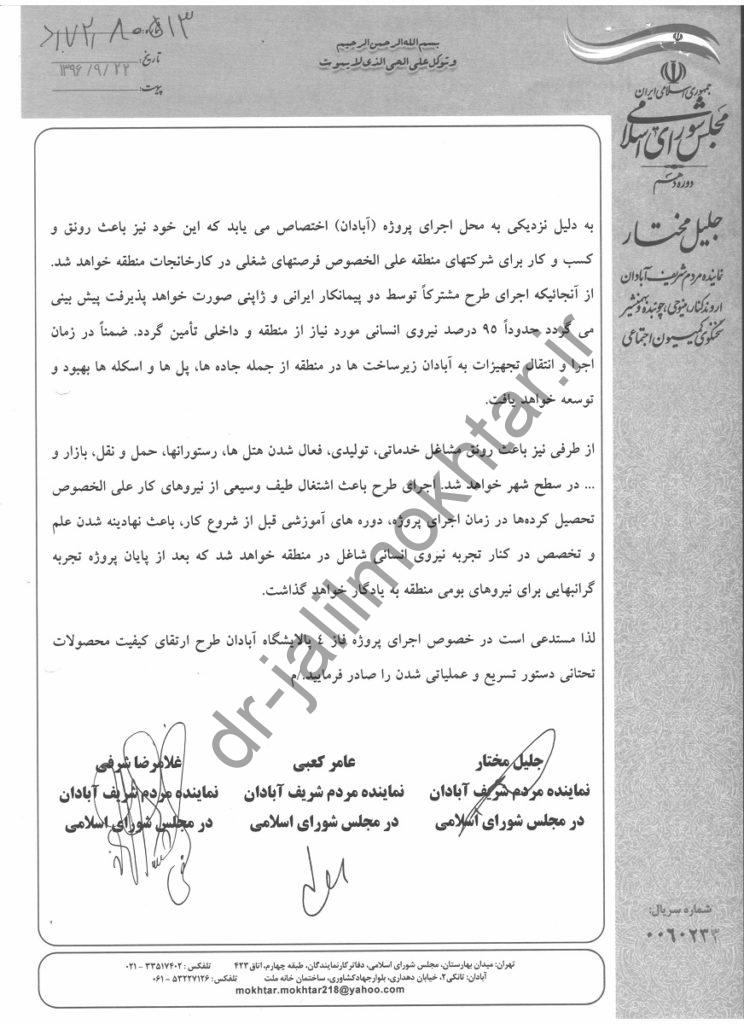 بسم الله الرحمن الرحیم
وتوکل علی الحی الذی لایموت
تاریخ: ۱۳۹۶/۹/۲۲
پیوست:
جمهوری اسلامی ایران
مجلس شورای اسلامی
دوره دهم
جلیل مختار
نماینده مردم شریف آبادان
اروندکنار، مینوحی، چوئبده و بهمنشیر
سخنگوی کمیسیون اجتماعی
به دلیل نزدیکی به محل اجرای پروژه (آبادان) اختصاص می یابد که این خود نیز باعث رونق و
کسب و کار برای شرکتهای منطقه علی الخصوص فرصتهای شغلی در کارخانجات منطقه خواهد شد.
از آنجائیکه اجرای طرح مشترکاً توسط دو پیمانکار ایرانی و ژاپنی صورت خواهد پذیرفت پیش بینی
می گردد حدوداً ۹۵ درصد نیروی انسانی مورد نیاز از منطقه و داخلی تأمین گردد. ضمناً در زمان
اجرا و انتقال تجهیزات به آبادان زیرساخت ها در منطقه از جمله جاده ها، پل ها و اسکله ها بهبود و
توسعه خواهد یافت.
از طرفی نیز باعث رونق مشاغل خدماتی، تولیدی، فعال شدن هتل ها، رستورانها، حمل و نقل، بازار و
... در سطح شهر خواهد شد. اجرای طرح باعث اشتغال طیف وسیعی از نیروهای کار علی الخصوص
تحصیل کرده‌ها در زمان اجرای پروژه، دوره های آموزشی قبل از شروع کار، باعث نهادینه شدن علم
و تخصص در کنار تجربه نیروی انسانی شاغل در منطقه خواهد شد که بعد از پایان پروژه تجربه
گرانبهایی برای نیروهای بومی منطقه به یادگار خواهد گذاشت.
لذا مستدعی است در خصوص اجرای پروژه فاز ٤ پالایشگاه آبادان طرح ارتقای کیفیت محصولات
تحتانی دستور تسریع و عملیاتی شدن را صادر فرمایید./م
جلیل مختار
نماینده مردم شریف آبادان
در مجلس شورای اسلامی
عامر کعبی
نماینده مردم شریف آبادان
در مجلس شورای اسلامی
غلامرضا شرفی
نماینده مردم شریف آبادان
در مجلس شورای اسلامی
dr-jalilmokhtar.ir
شماره سریال:
۰۰۶۰۲۳۳
تهران: میدان بهارستان، مجلس شورای اسلامی، دفاتر کار نمایندگان، طبقه چهارم، اتاق ۴۲۳ تلفکس: ۳۳۵۱۷۴۰۲ - ۰۲۱
آبادان: تانکی۲، خیابان دهداری، بلوار جهاد کشاورزی، ساختمان خانه ملت تلفکس: ۵۳۲۲۷۱۲۶ - ۰۶۱
mokhtar.mokhtar218@yahoo.com